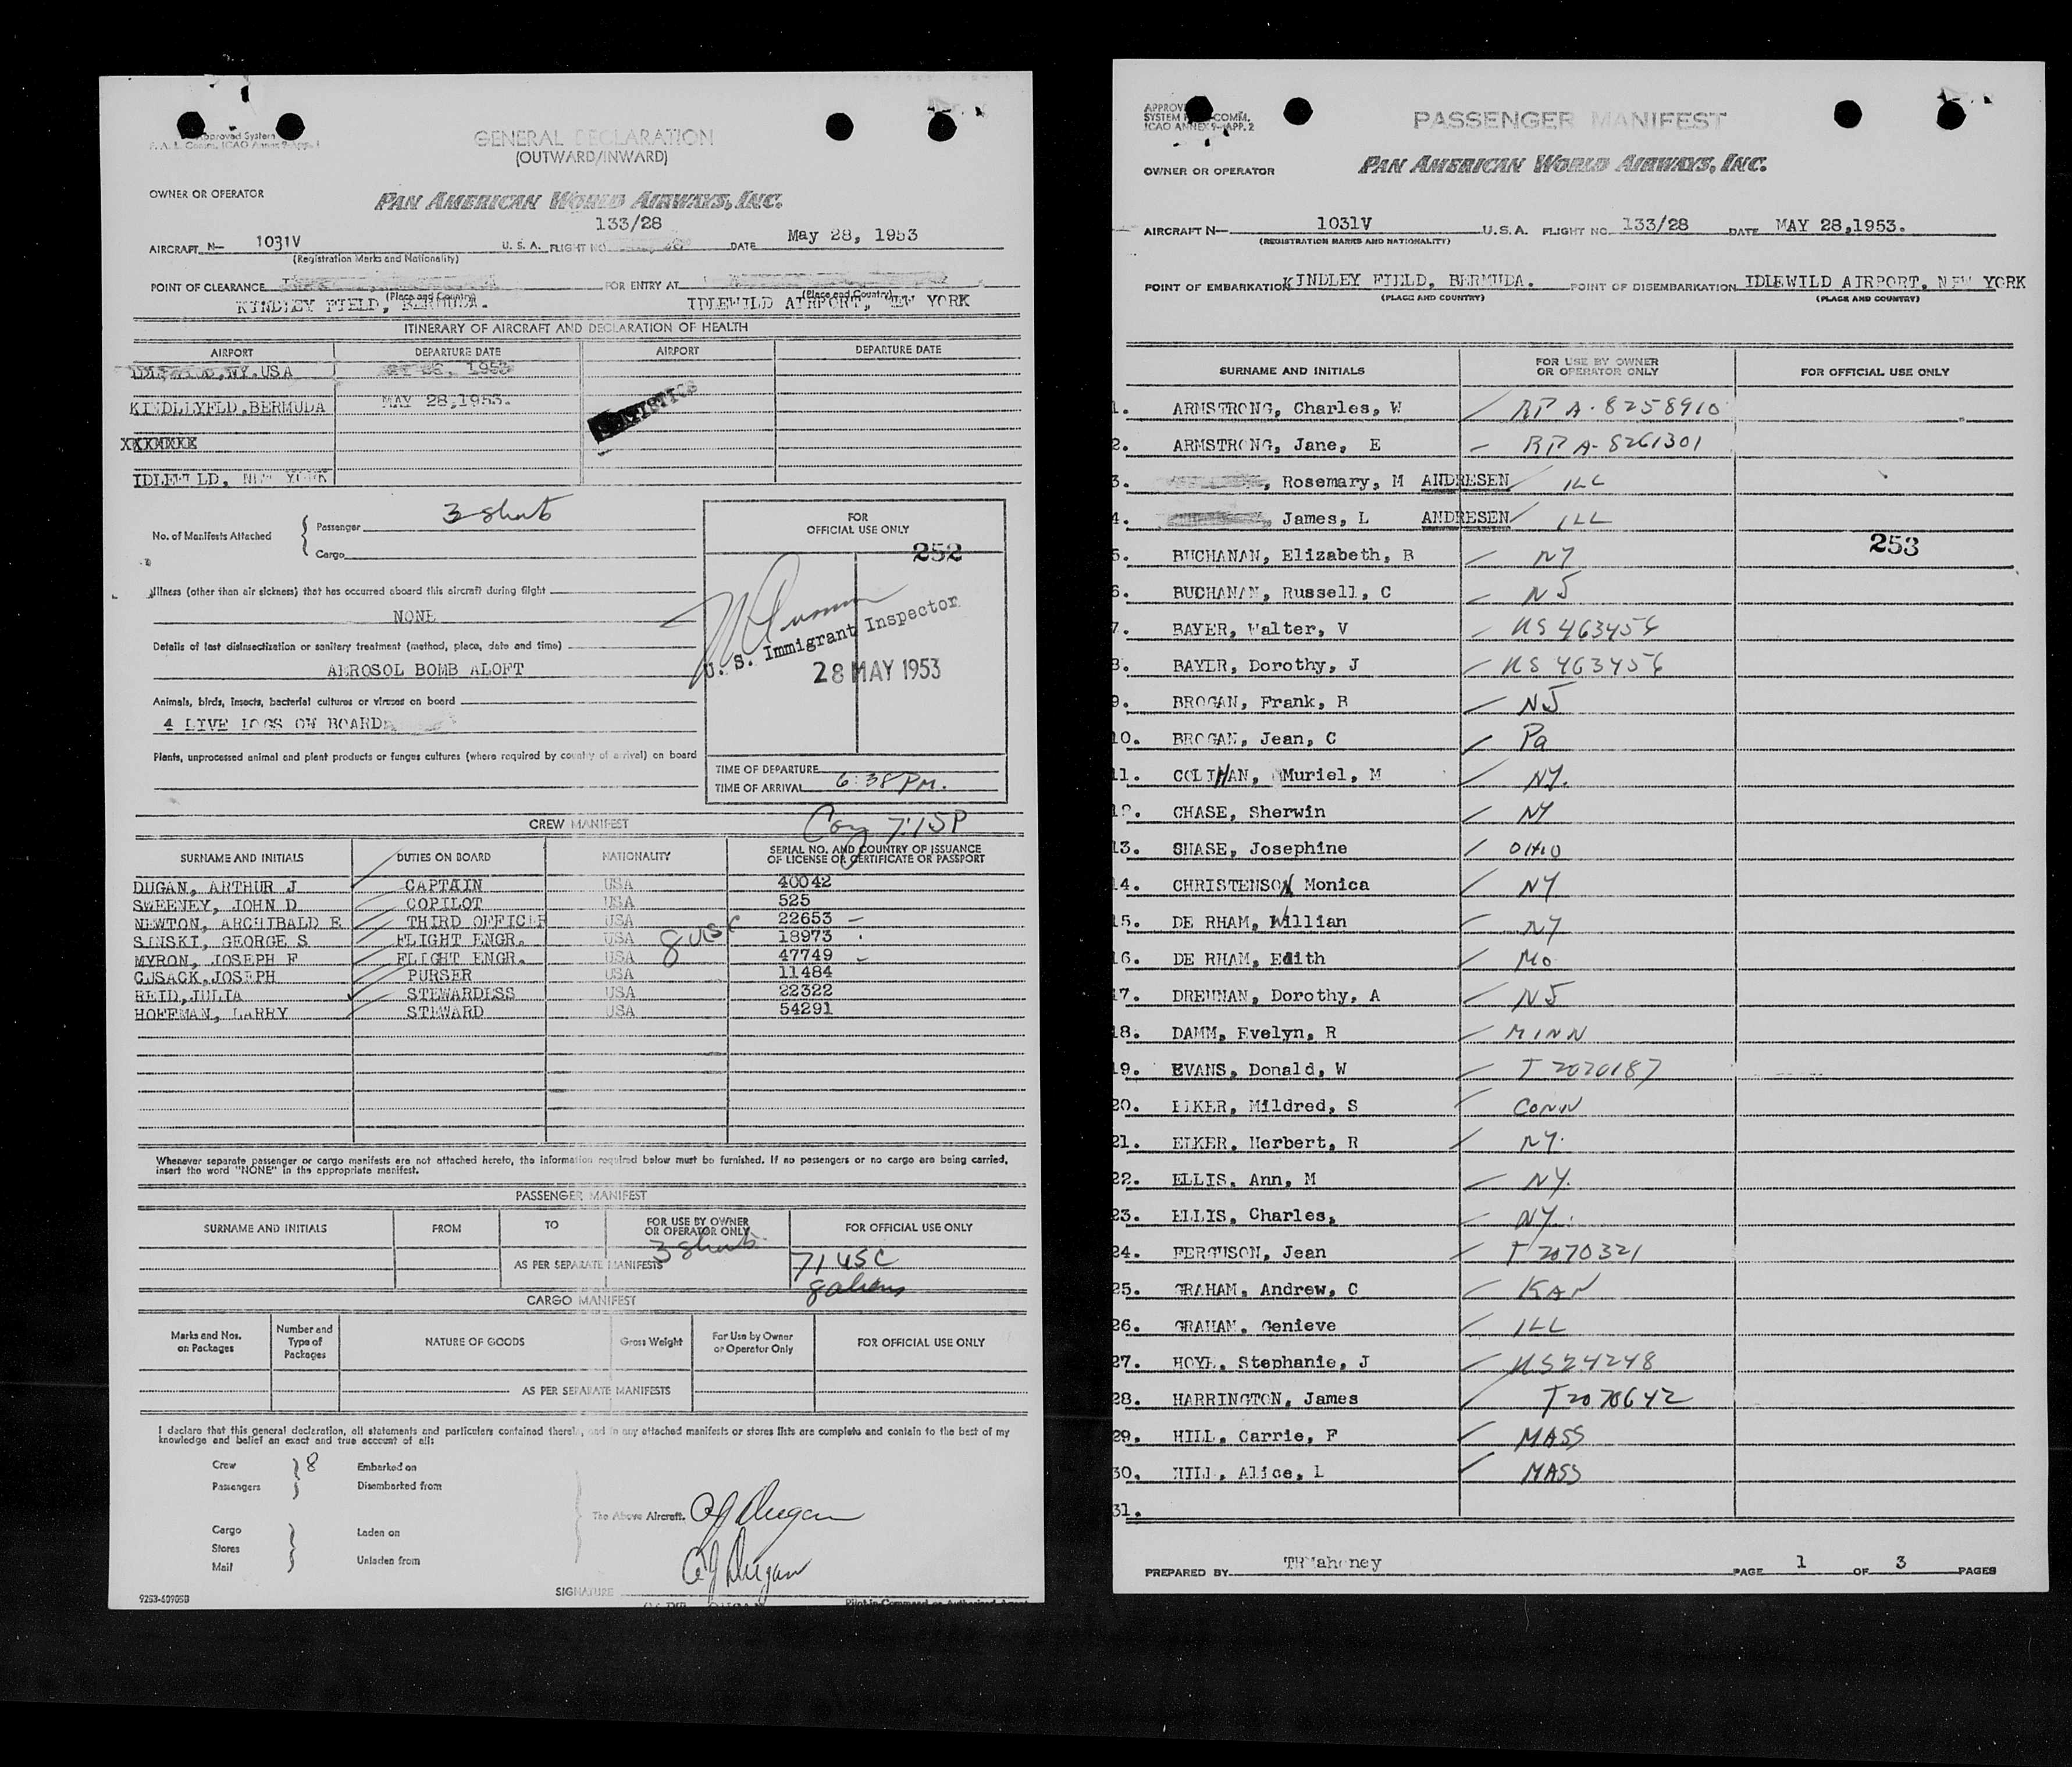 Approved System
F. A. L. Comm. ICAO Annex 9-App. 1
GENERAL DECLARATION
(OUTWARD/INWARD)
OWNER OR OPERATOR
PAN AMERICAN WORLD AIRWAYS, INC.
133/28
AIRCRAFT N- 1031V U. S. A. FLIGHT NO. DATE May 28, 1953
(Registration Marks and Nationality)
POINT OF CLEARANCE FOR ENTRY AT
(Place and Country) (Place and Country)
KINDLEY FIELD, BERMUDA. IDLEWILD AIRPORT, NEW YORK
ITINERARY OF AIRCRAFT AND DECLARATION OF HEALTH
AIRPORT DEPARTURE DATE AIRPORT DEPARTURE DATE
IDLEWILD, NY. USA 1953
KINDLLYFLD, BERMUDA MAY 28,1953.
STATISTICS
XXXXXXX
IDLEWILD, NEW YORK
No. of Manifests Attached
Passenger 3 sheets
Cargo
FOR
OFFICIAL USE ONLY
252
Illness (other than air sickness) that has occurred aboard this aircraft during flight
NONE
Details of last disinsectization or sanitary treatment (method, place, date and time)
AEROSOL BOMB ALOFT
U. S. Immigrant Inspector
28 MAY 1953
Animals, birds, insects, bacterial cultures or viruses on board
4 LIVE DOGS ON BOARD
Plants, unprocessed animal and plant products or funges cultures (where required by country of arrival) on board
TIME OF DEPARTURE
TIME OF ARRIVAL 6:38 PM.
7:15P
CREW MANIFEST
SURNAME AND INITIALS DUTIES ON BOARD NATIONALITY SERIAL NO. AND COUNTRY OF ISSUANCE OF LICENSE OR CERTIFICATE OR PASSPORT
DUGAN, ARTHUR J CAPTAIN USA 40042
SWEENEY, JOHN D COPILOT USA 525
NEWTON, ARCHIBALD E THIRD OFFICER USA 22653
SINSKI, GEORGE S FLIGHT ENGR. USA 18973
8 USC
MYRON, JOSEPH F FLIGHT ENGR. USA 47749
CUSACK, JOSEPH PURSER USA 11484
REID, JULIA STEWARDESS USA 22322
HOFFMAN, LARRY STEWARD USA 54291
Whenever separate passenger or cargo manifests are not attached hereto, the information required below must be furnished. If no passengers or no cargo are being carried,
insert the word "NONE" in the appropriate manifest.
PASSENGER MANIFEST
SURNAME AND INITIALS FROM TO FOR USE BY OWNER OR OPERATOR ONLY FOR OFFICIAL USE ONLY
3 sheets
AS PER SEPARATE MANIFESTS 71 USC
8 aliens
CARGO MANIFEST
Marks and Nos. on Packages Number and Type of Packages NATURE OF GOODS Gross Weight For Use by Owner or Operator Only FOR OFFICIAL USE ONLY
AS PER SEPARATE MANIFESTS
I declare that this general declaration, all statements and particulars contained therein, and in any attached manifests or stores lists are complete and contain to the best of my
knowledge and belief an exact and true account of all:
Crew 8 Embarked on
Passengers Disembarked from
The Above Aircraft. A J Dugan
Cargo Laden on
Stores
Mail Unladen from
A J Dugan
SIGNATURE
CAPT. DUGAN Pilot-in-Command or Authorized Agent
9253-60905B
APPROVED
SYSTEM COMM.
ICAO ANNEX 9-APP. 2
PASSENGER MANIFEST
OWNER OR OPERATOR
PAN AMERICAN WORLD AIRWAYS, INC.
AIRCRAFT N- 1031V U.S.A. FLIGHT NO. 133/28 DATE MAY 28,1953.
(REGISTRATION MARKS AND NATIONALITY)
POINT OF EMBARKATION KINDLEY FIELD, BERMUDA. POINT OF DISEMBARKATION IDLEWILD AIRPORT, NEW YORK
(PLACE AND COUNTRY) (PLACE AND COUNTRY)
SURNAME AND INITIALS FOR USE BY OWNER OR OPERATOR ONLY FOR OFFICIAL USE ONLY
1. ARMSTRONG, Charles, W RP A-8258910
2. ARMSTRONG, Jane, E RP A-8261301
3. , Rosemary, M ANDRESEN ILL
4. , James, L ANDRESEN ILL
253
5. BUCHANAN, Elizabeth, B NY
6. BUCHANAN, Russell, C NJ
7. BAYER, Walter, V US 463456
8. BAYER, Dorothy, J US 463456
9. BROGAN, Frank, B NJ
10. BROGAN, Jean, C Pa
11. COLIHAN, Muriel, M NY.
12. CHASE, Sherwin NY
13. SHASE, Josephine OHIO
14. CHRISTENSON Monica NY
15. DE RHAM, Willian NY
16. DE RHAM, Edith Mo
17. DRENNAN, Dorothy, A NJ
18. DAMM, Evelyn, R MINN
19. EVANS, Donald, W T 2070187
20. EIKER, Mildred, S CONN
21. EIKER, Herbert, R NY.
22. ELLIS, Ann, M NY.
23. ELLIS, Charles, NY.
24. FERGUSON, Jean T 2070321
25. GRAHAM, Andrew, C KAN
26. GRAHAM, Genieve ILL
27. HOYE, Stephanie, J US24248
28. HARRINGTON, James T2070642
29. HILL, Carrie, F MASS
30. HILL, Alice, L MASS
31.
PREPARED BY TRMahoney PAGE 1 OF 3 PAGES